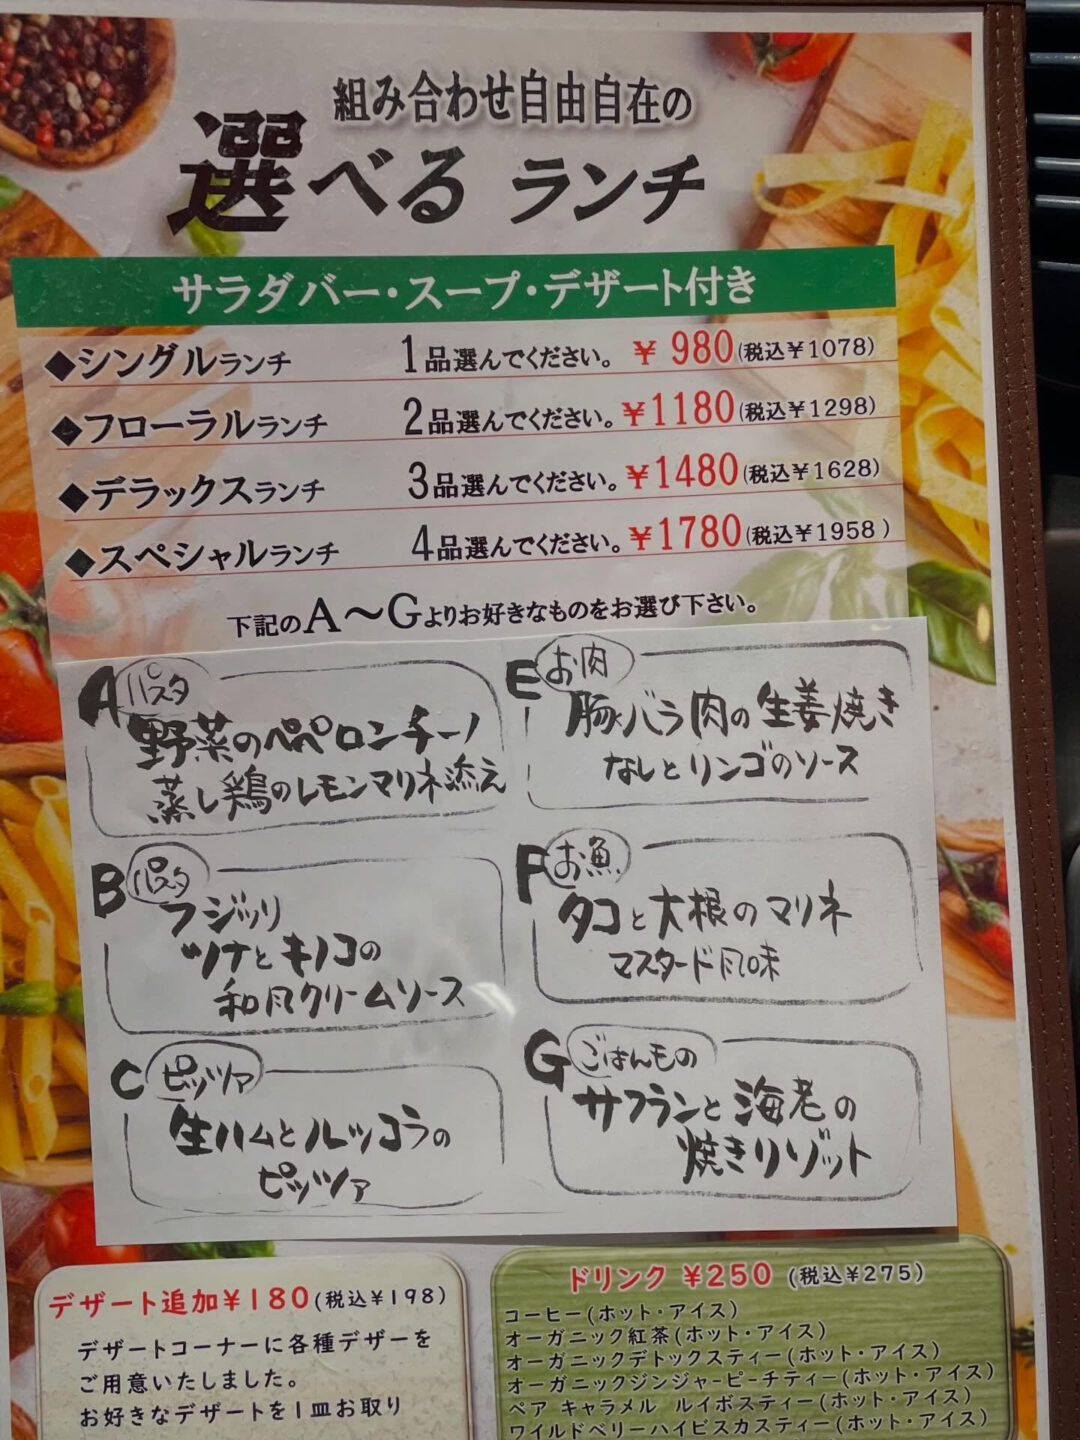 組み合わせ自由自在の
選べるランチ
サラダバー・スープ・デザート付き
◆シングルランチ 1品選んでください。 ¥980(税込¥1078)
◆フローラルランチ 2品選んでください。¥1180(税込¥1298)
◆デラックスランチ 3品選んでください。¥1480(税込¥1628)
◆スペシャルランチ 4品選んでください。¥1780(税込¥1958)
下記のA〜Gよりお好きなものをお選び下さい。
A パスタ
野菜のペペロンチーノ
蒸し鶏のレモンマリネ添え
B パスタ
フジッリ
ツナとキノコの
和風クリームソース
C ピッツァ
生ハムとルッコラの
ピッツァ
E お肉
豚バラ肉の生姜焼き
なしとリンゴのソース
F お魚
タコと大根のマリネ
マスタード風味
G ごはんもの
サフランと海老の
焼きリゾット
デザート追加¥180(税込¥198)
デザートコーナーに各種デザーを
ご用意いたしました。
お好きなデザートを1皿お取り
ドリンク ¥250 (税込¥275)
コーヒー(ホット・アイス)
オーガニック紅茶(ホット・アイス)
オーガニックデトックスティー(ホット・アイス)
オーガニックジンジャーピーチティー(ホット・アイス)
ペア キャラメル ルイボスティー(ホット・アイス)
ワイルドベリーハイビスカスティー(ホット・アイス)